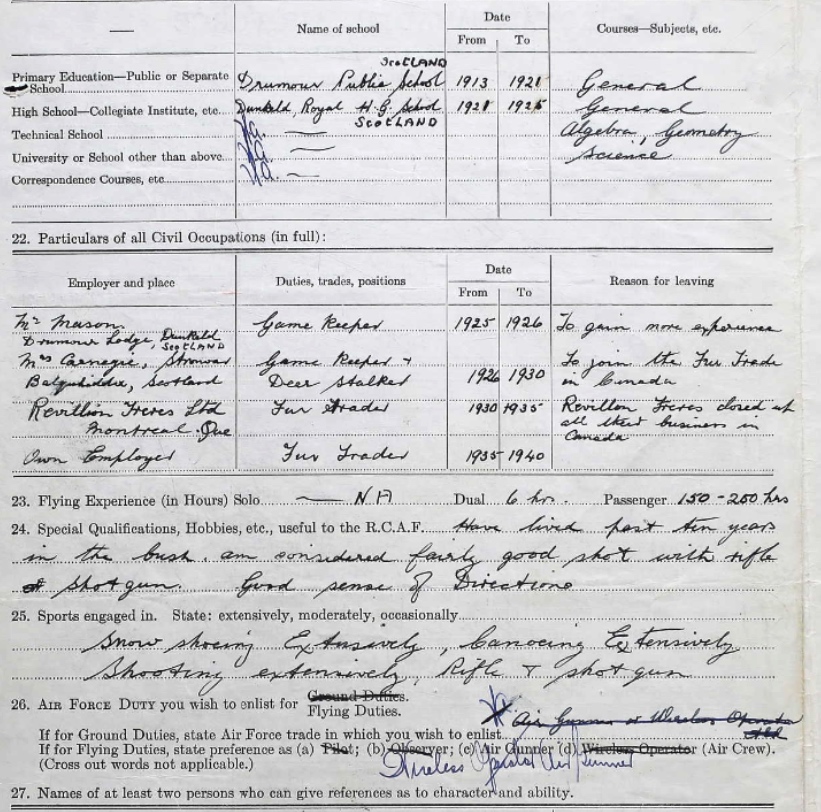 Name of school
Date
Courses—Subjects, etc.
From
To
SCOTLAND
Primary Education—Public or Separate
School
Drumour Public School 1913 1921 General
High School—Collegiate Institute, etc. Dunkeld, Royal H.G. School 1921 1925 General
SCOTLAND
Technical School Na. — Algebra, Geometry
University or School other than above Na. — Science
Correspondence Courses, etc Na. —
22. Particulars of all Civil Occupations (in full):
Employer and place
Duties, trades, positions
Date
Reason for leaving
From
To
Mr Mason Game Keeper 1925 1926 To gain more experience
Drumour Lodge, Dunkeld
SCOTLAND
Mrs Carnegie, Stronvar Game Keeper + To join the Fur Trade
Balquhidder, Scotland Deer Stalker 1926 1930 in Canada
Revillion Freres Ltd Fur Trader 1930 1935 Revillon Freres closed up
Montreal Que all their business in
Canada
Own Employer Fur Trader 1935 1940
23. Flying Experience (in Hours) Solo — NA Dual 6 hr. Passenger 150-250 hrs
24. Special Qualifications, Hobbies, etc., useful to the R.C.A.F. Have lived past ten years
in the bush. am considered fairly good shot with rifle
shotgun. Good sense of Directions
25. Sports engaged in. State: extensively, moderately, occasionally
Snow shoeing Extensively, Canoeing Extensively
Shooting extensively, Rifle + shot gun
26. AIR FORCE DUTY you wish to enlist for Ground Duties.
Flying Duties.
Air Gunner or Wireless Operator
If for Ground Duties, state Air Force trade in which you wish to enlist
If for Flying Duties, state preference as (a) Pilot; (b) Observer; (c) Air Gunner (d) Wireless Operator (Air Crew).
(Cross out words not applicable.) Wireless Operator Air Gunner
27. Names of at least two persons who can give references as to character and ability.